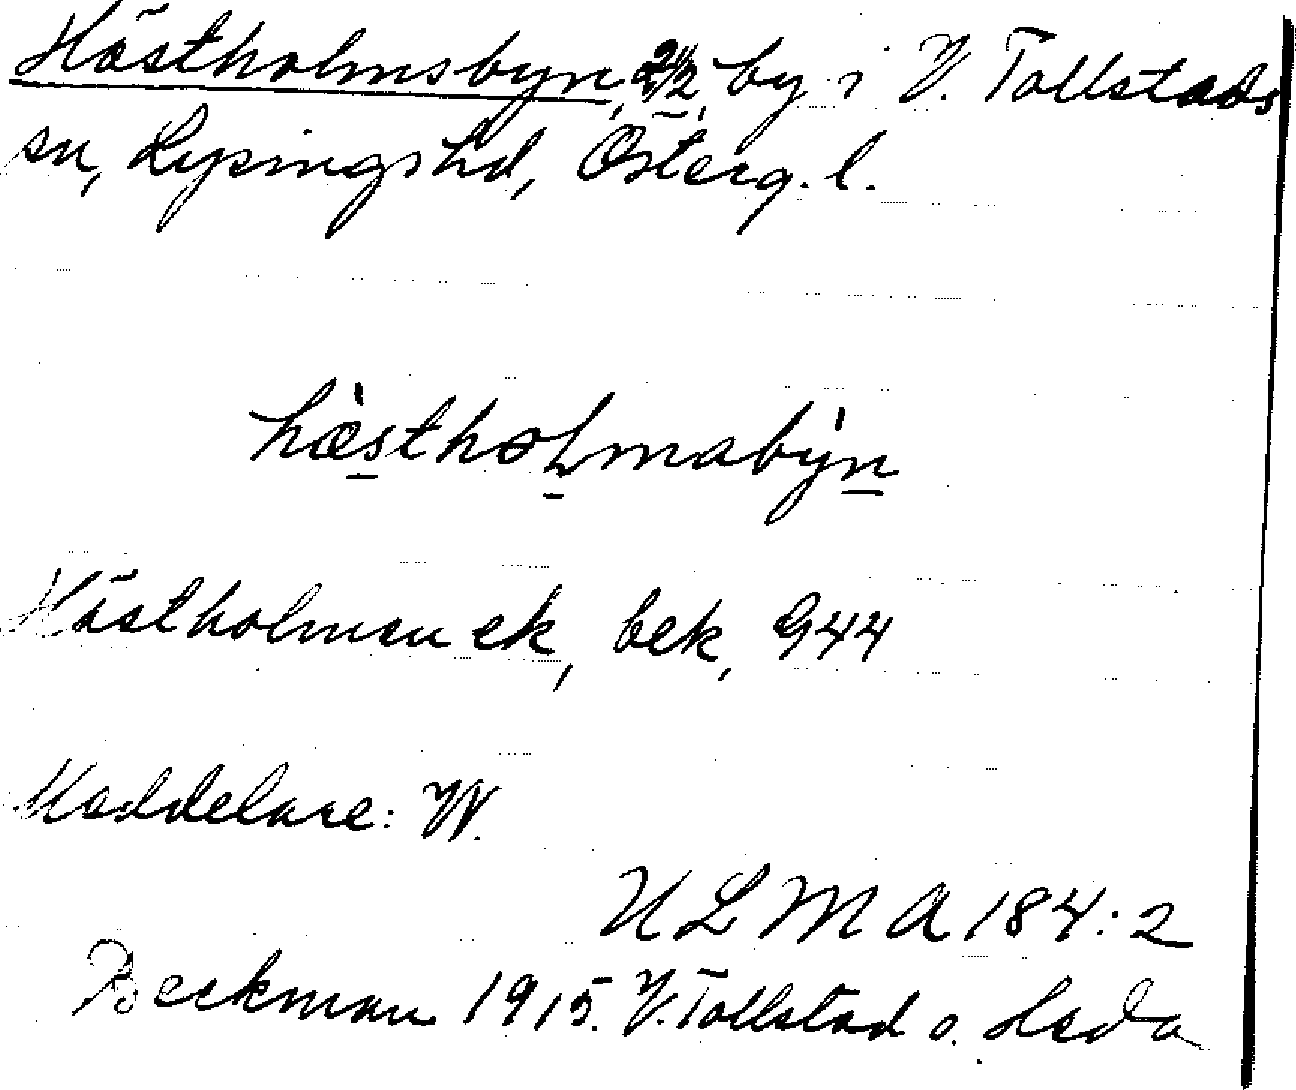 Hästholmsbyn, 2 1/2, by i V. Tollstads
sn, Lysingshd, Österg. l.
hæstholmabyn
Hästholmen ek, bek, 944
Meddelare: W.
ULMA 184:2
Beckman 1915. V. Tollstad o. Heda